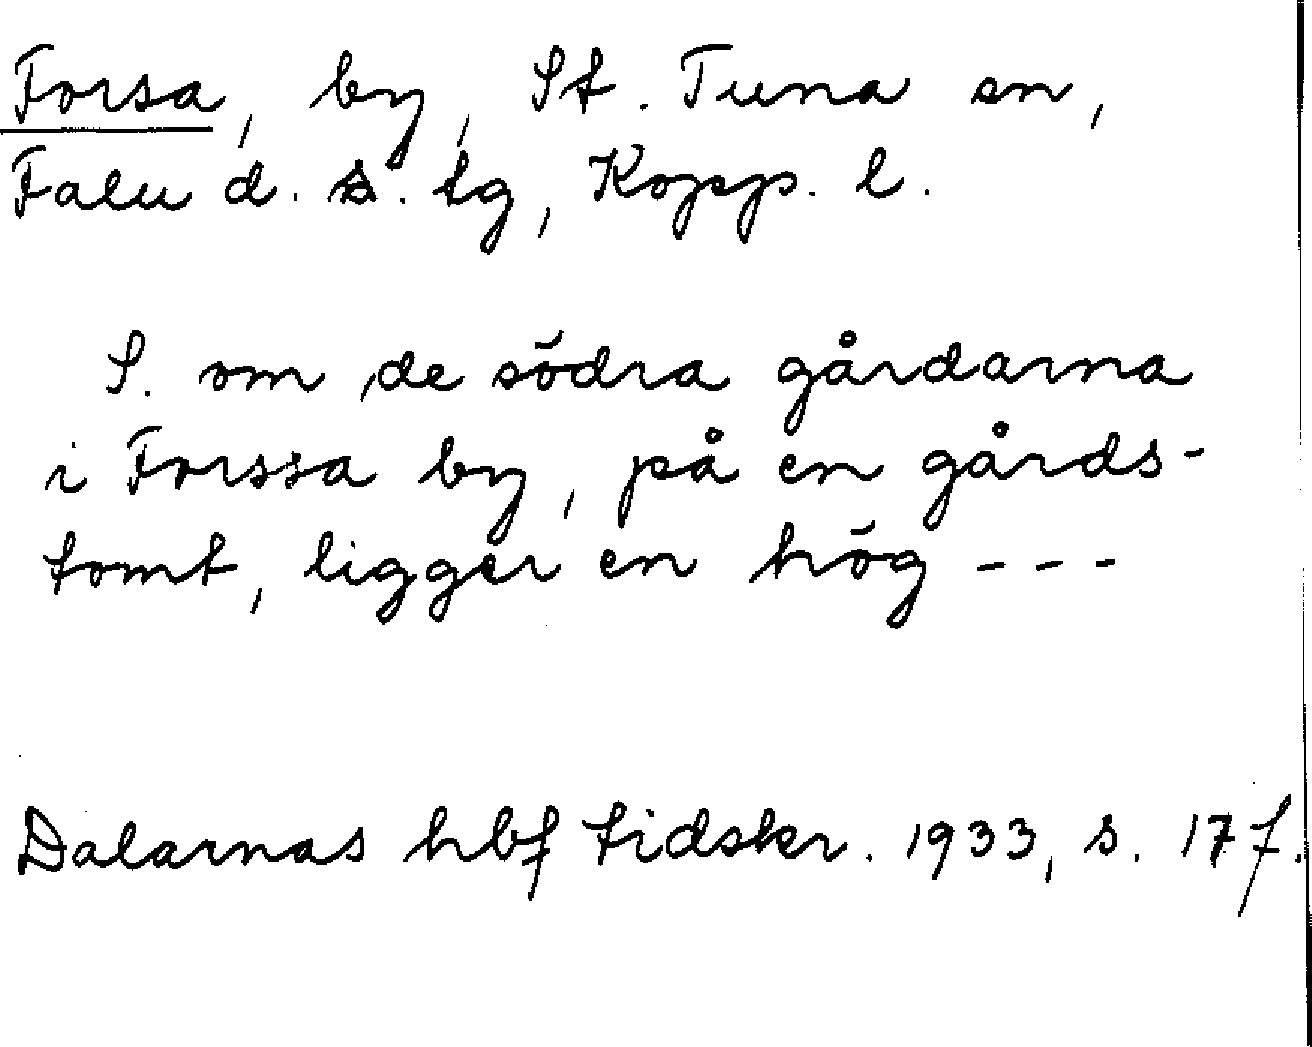 Forsa, by, St. Tuna sn,
Falu d. s. tg, Kopp. l.
S. om de södra gårdarna
i Forssa by, på en gårds-
tomt, ligger en hög ---
Dalarnas hbf tidskr. 1933, s. 17 f.